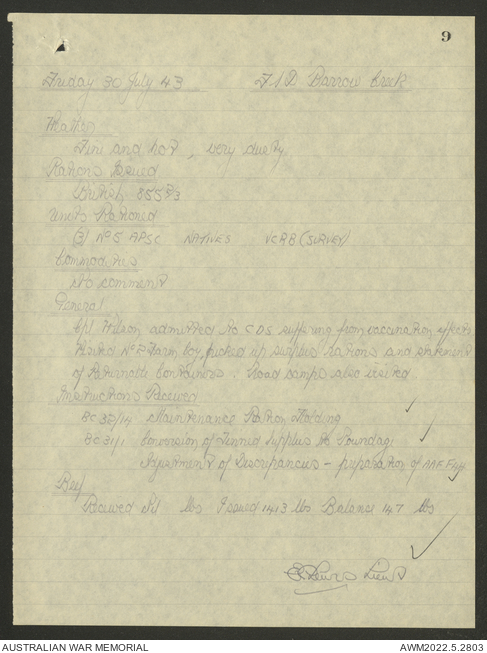 9
Friday 30 July 43 F.S.D. Barrow Creek
Weather
Fine and hot, very dusty.
Rations Issued
British
Units Rationed
(3) No 5 APSC NATIVES VCRB (SURVEY)
Commodities
No comment
General
Cpl Wilson admitted to CDS suffering from vaccination effects
Visited No 2 Farm Coy, picked up surplus rations and statement
of Returnable Containers. Road camps also visited
Instructions Received
BC 30/14 Maintenance Ration Holding
BC 31/1 Conversion of Tinned Supplies to Poundage
Adjustment of Discrepancies - preparation of AAF
Beef
Received Nil lbs Issued 1413 lbs Balance 147 lbs
Lieut
AUSTRALIAN WAR MEMORIAL AWM2022.5.2803